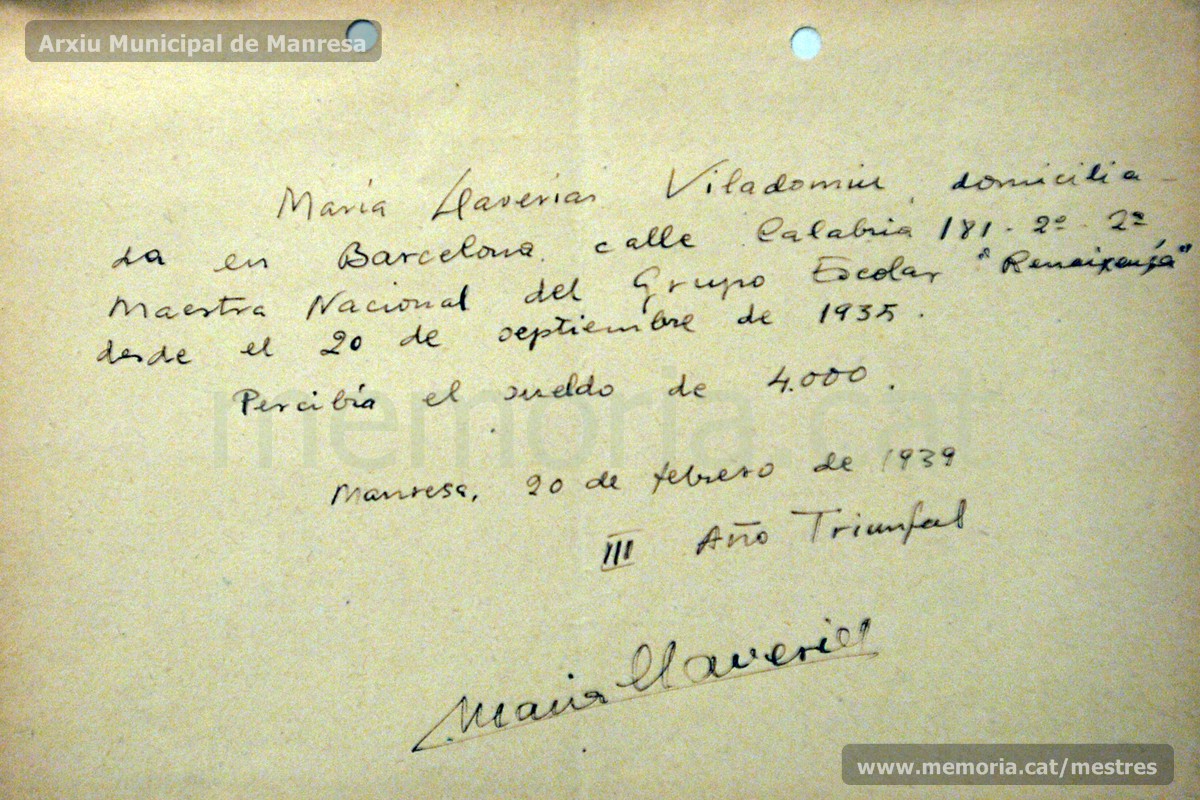 Arxiu Municipal de Manresa
María Llaverias Viladomiu, domicilia-
da en Barcelona calle Calabria 181-2º-2ª
Maestra Nacional del Grupo Escolar "Renaixença"
desde el 20 de septiembre de 1935.
Percibía el sueldo de 4.000.
memoria.cat
Manresa, 20 de febrero de 1939
III Año Triunfal
Maria Llaverias
www.memoria.cat/mestres